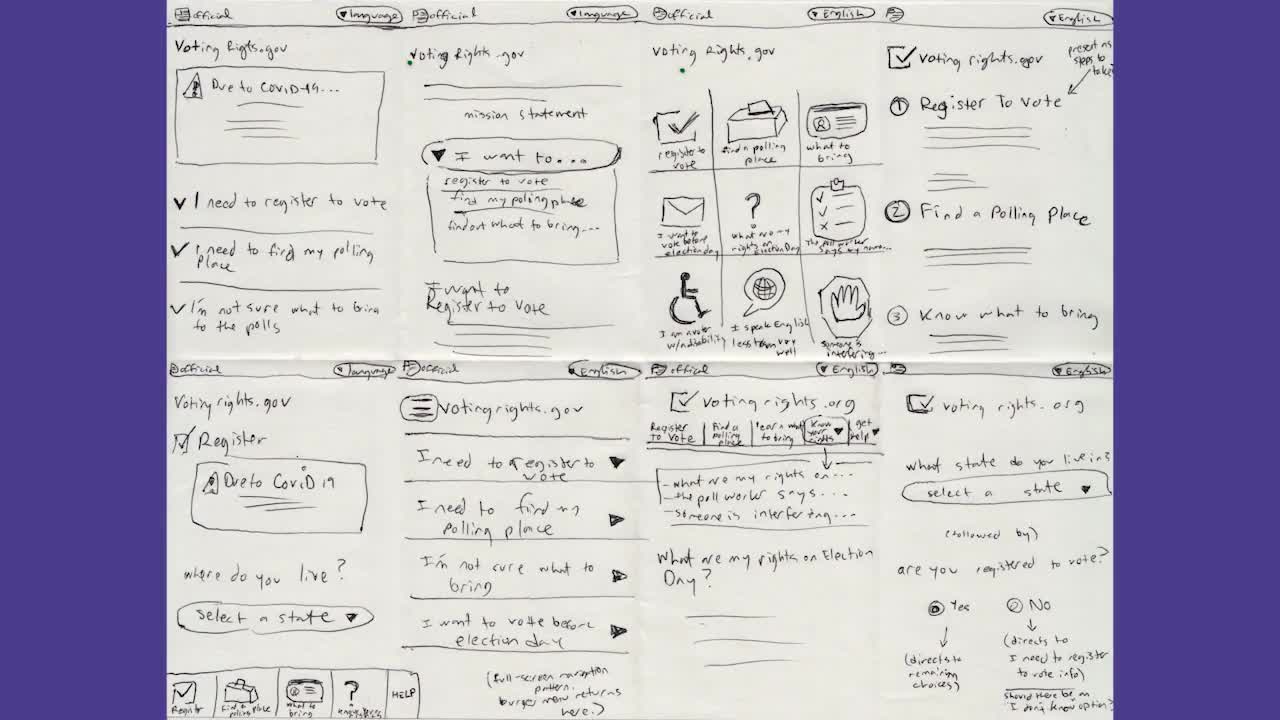 official
▼language
Voting Rigts.gov
Due to COVID-19...
I need to register to vote
I need to find my polling
place
I'm not sure what to bring
to the polls
official
▼language
Voting Rights.gov
mission statement
▼ I want to...
register to vote
find my poling place
find out what to bring...
I want to
Register to Vote
official
▼English
Voting Rights.gov
register to
vote
find a polling
place
what to
bring
I want to
vote before
election day
what are my
rights on
Election Day
The poll worker
says my name...
I am a voter
w/ a disability
I speak English
less than very
well
someone is
interfering...
▼English
voting rights.gov
present as
steps to
take
1 Register To Vote
2 Find a Polling Place
3 Know what to bring
official
▼language
Voting rights.gov
Register
Due to COVID 19
where do you live?
select a state ▼
Register
find a
polling place
what to
bring
?
HELP
official
▼English
votingrights.gov
I need to register to
vote
I need to find my
polling place
I'm not sure what to
bring
I want to vote before
election day
(full-screen navigation
pattern.
burger menu returns
here.)
official
▼English
voting rights.org
Register
to vote
Find a
polling
place
learn what
to bring
Know
your
rights
get
help
-what are my rights on...
-the poll worker says...
-someone is interfering...
What are my rights on Election
Day?
▼English
voting rights.org
what state do you live in?
select a state ▼
(followed by)
are you registered to vote?
Yes
No
(directs to
remaining
choices)
(directs to
I need to register
to vote info)
should there be an
"I don't know option?